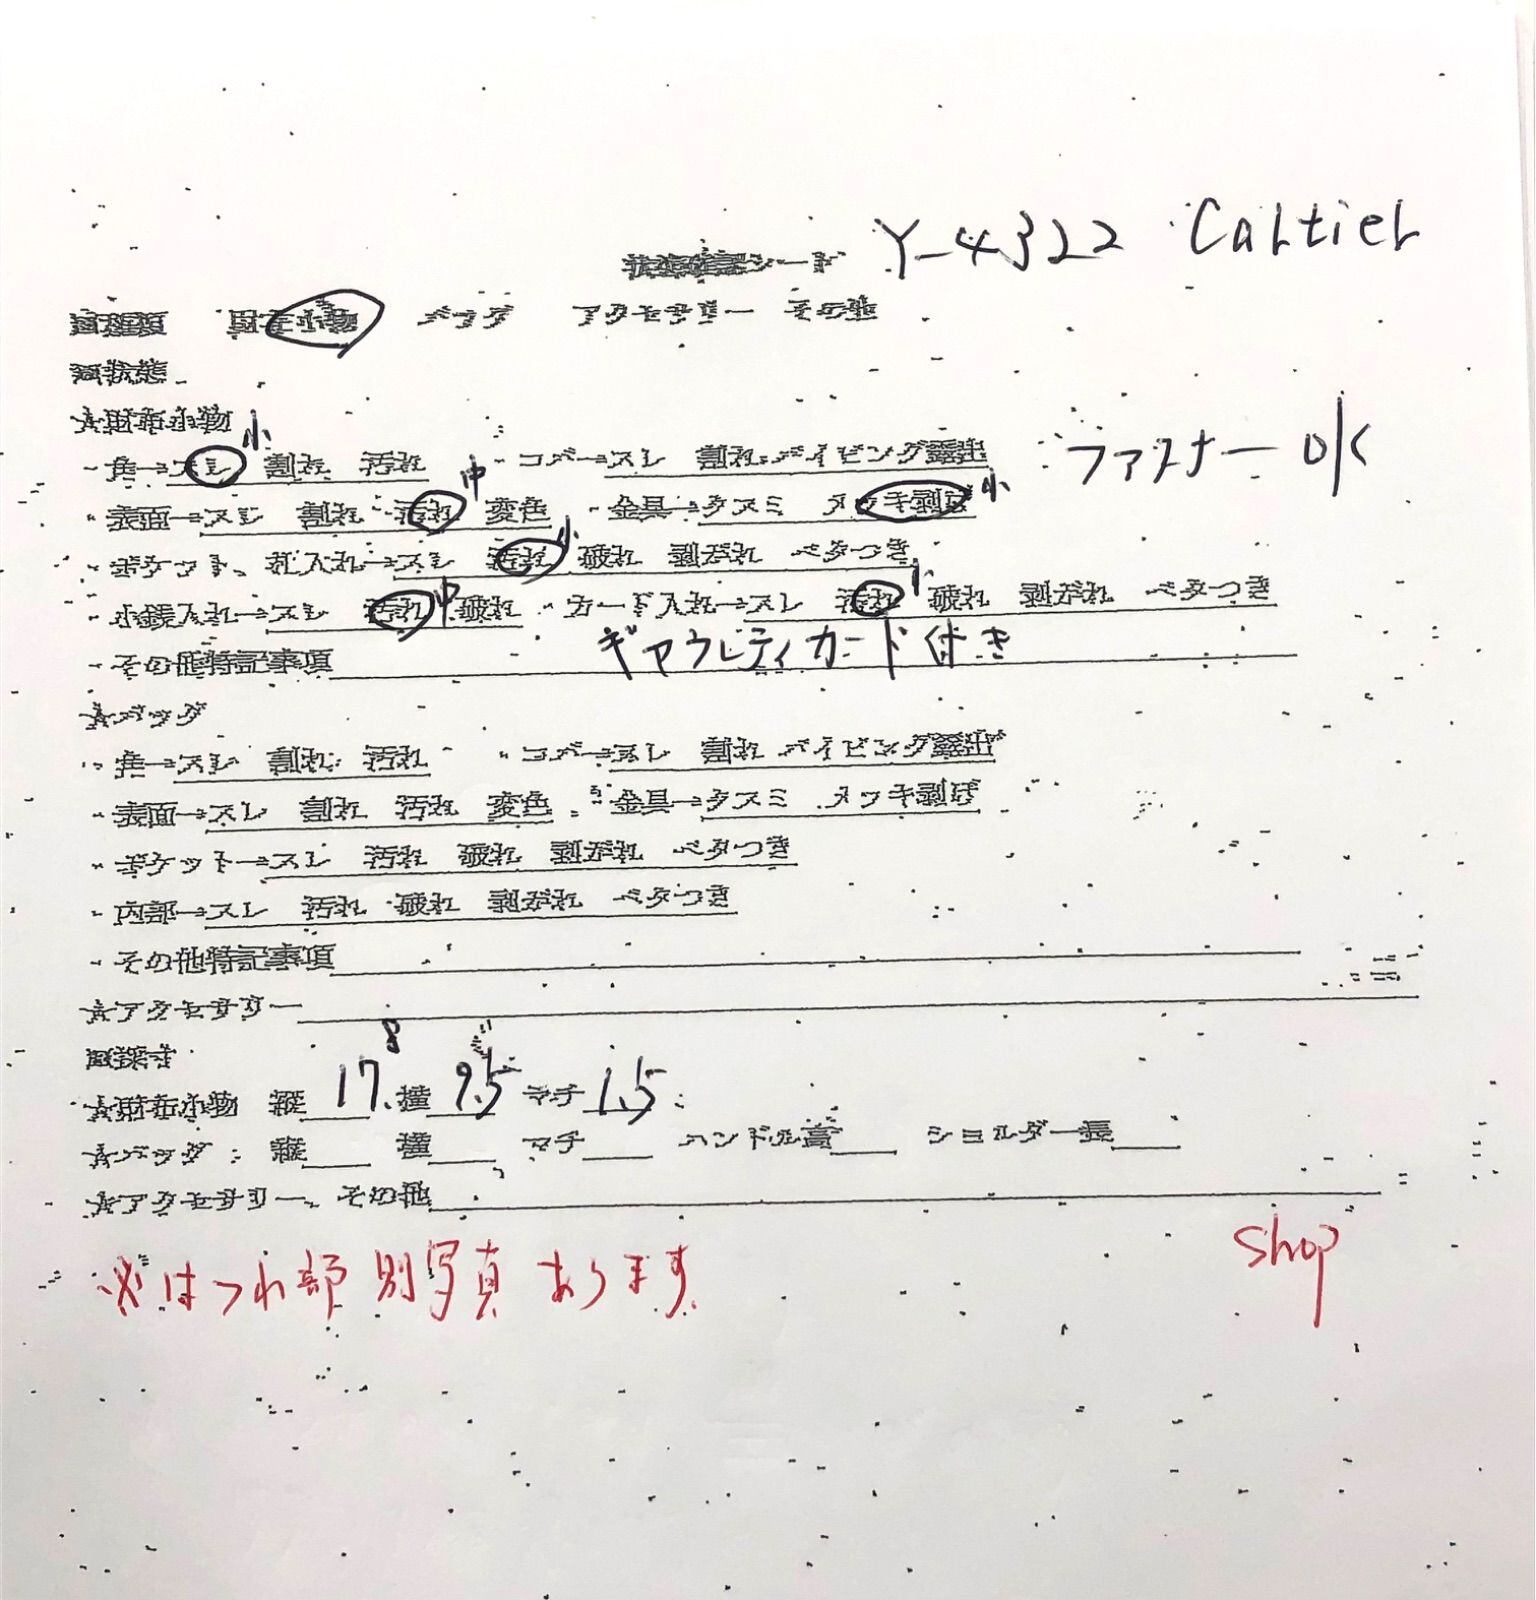 状態確認シート Y-4322 Cartier
財布小物 バッグ アクセサリー その他
状態
☆財布小物
・角→スレ 小 割れ 汚れ ・コバ→スレ 割れ パイピング露出 ファスナー OK
・表面→スレ 割れ 汚れ 中 変色 ・金具→クスミ メッキ剥げ 小
・ポケット、札入れ→スレ 汚れ 小 破れ 剥がれ ベタつき
・小銭入れ→スレ 汚れ 中 破れ ・カード入れ→スレ 汚れ 小 破れ 剥がれ ベタつき
・その他特記事項 ギャラレティカード付き
☆バッグ
・角→スレ 割れ 汚れ ・コバ→スレ 割れ パイピング露出
・表面→スレ 割れ 汚れ 変色 ・金具→クスミ メッキ剥げ
・ポケット→スレ 汚れ 破れ 剥がれ ベタつき
・内部→スレ 汚れ 破れ 剥がれ ベタつき
・その他特記事項
☆アクセサリー
採寸
☆財布小物 縦 17.8 横 9.5 マチ 1.5
☆バッグ 縦 横 マチ ハンドル高 ショルダー長
☆アクセサリー、その他
※ほつれ部 別写真あります shop